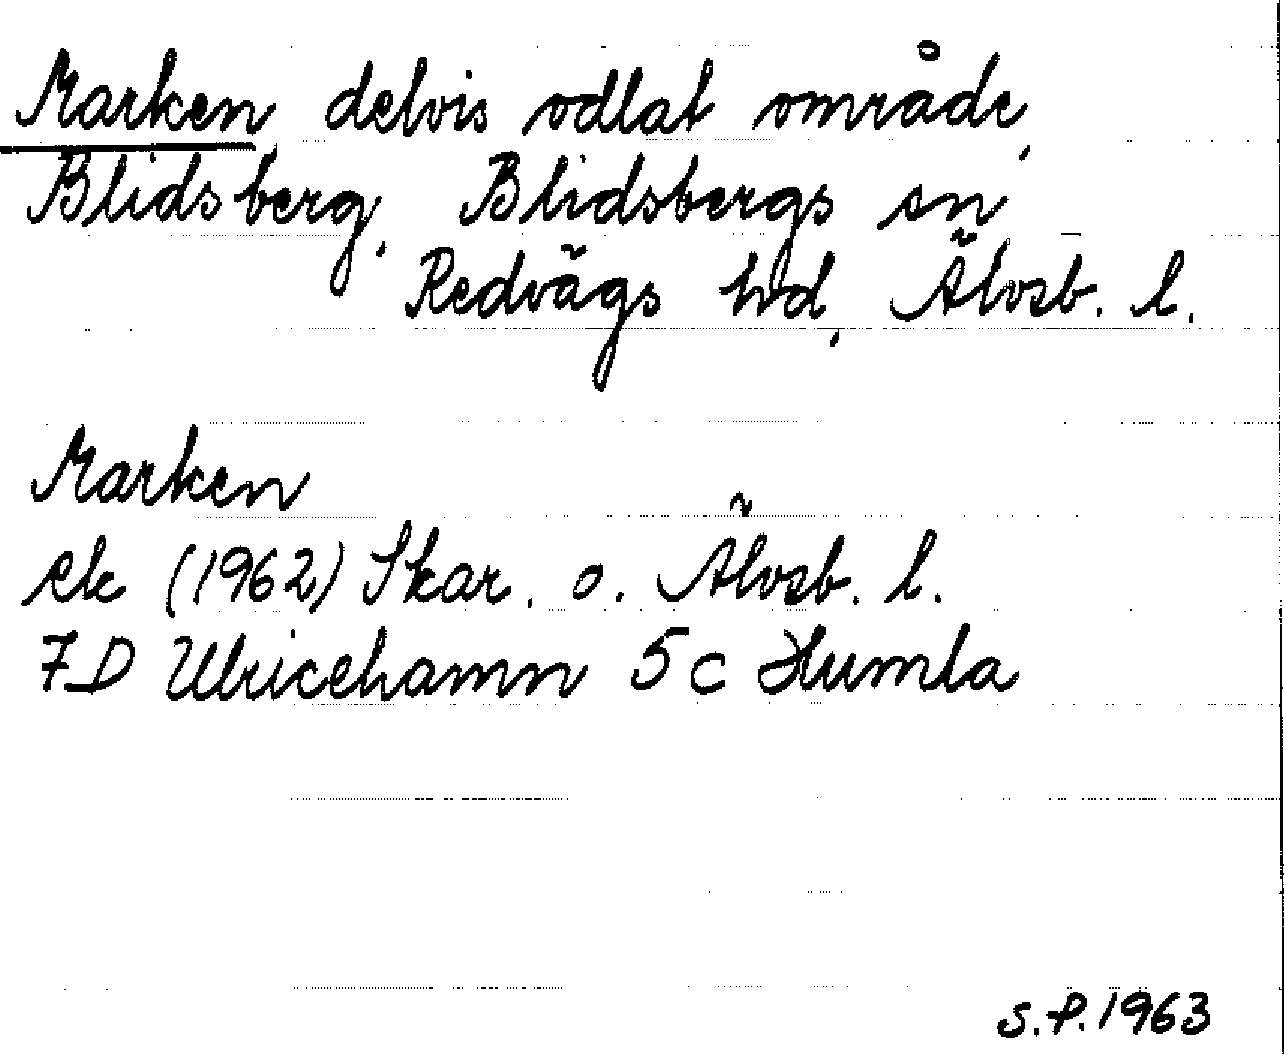 Marken, delvis odlat område,
Blidsberg, Blidsbergs sn
Redvägs hd, Älvsb. l.
Marken
ek (1962) Skar. o. Älvsb. l.
7D Ulricehamn 5c Humla
S.P. 1963